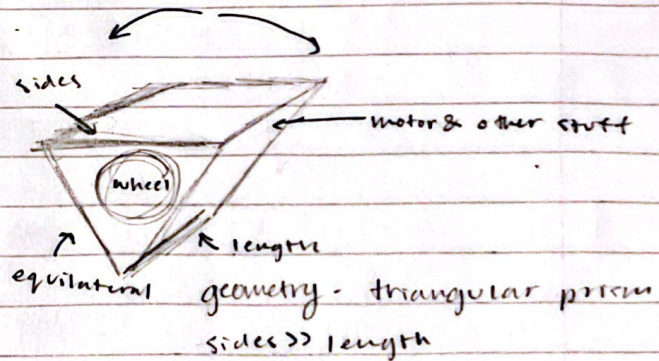 sides
motor & other stuff
wheel
length
equilateral
geometry - triangular prism
sides >> length